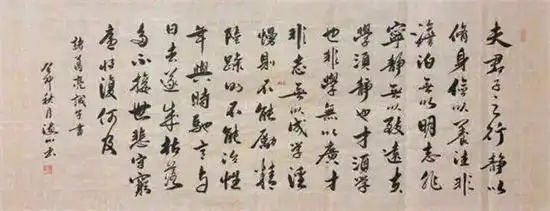 夫君子之行静以
脩身儉以養德非
澹泊無以明志非
寧静無以致遠夫
學須静也才須學
也非學無以廣才
非志無以成学淫
慢則不能勵精
險躁則不能冶性
年與時馳意与
日去遂成枯落
多不接世悲守窮
廬將復何及
諸葛亮誡子書
癸卯秋月